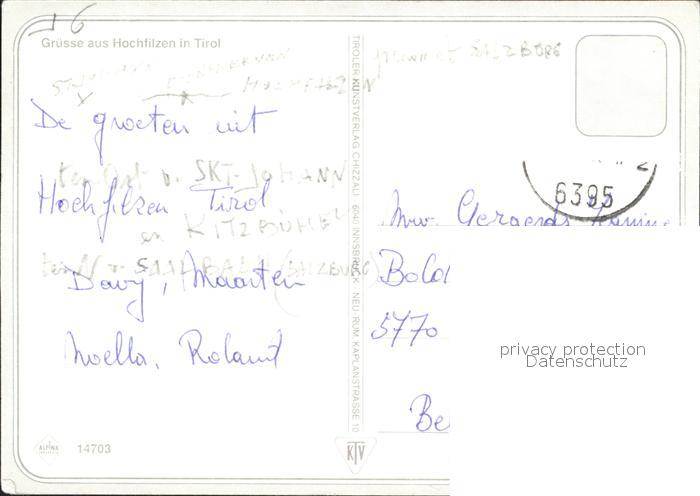 16
Grüsse aus Hochfilzen in Tirol
SALZBURG
De groeten uit
ten Ost v. SKT-JOHANN
Hochfilzen Tirol
en KITZBÜHEL
ten N v SAALBACH (SALZBURG)
Davy, Maarten
Noella, Roland
ALPINA
14703
TIROLER KUNSTVERLAG CHIZZALI 6040 INNSBRUCK NEU-RUM, KAPLANSTRASSE 10
KTV
6395
Mw. Geraerds
5770
Be
privacy protection
Datenschutz